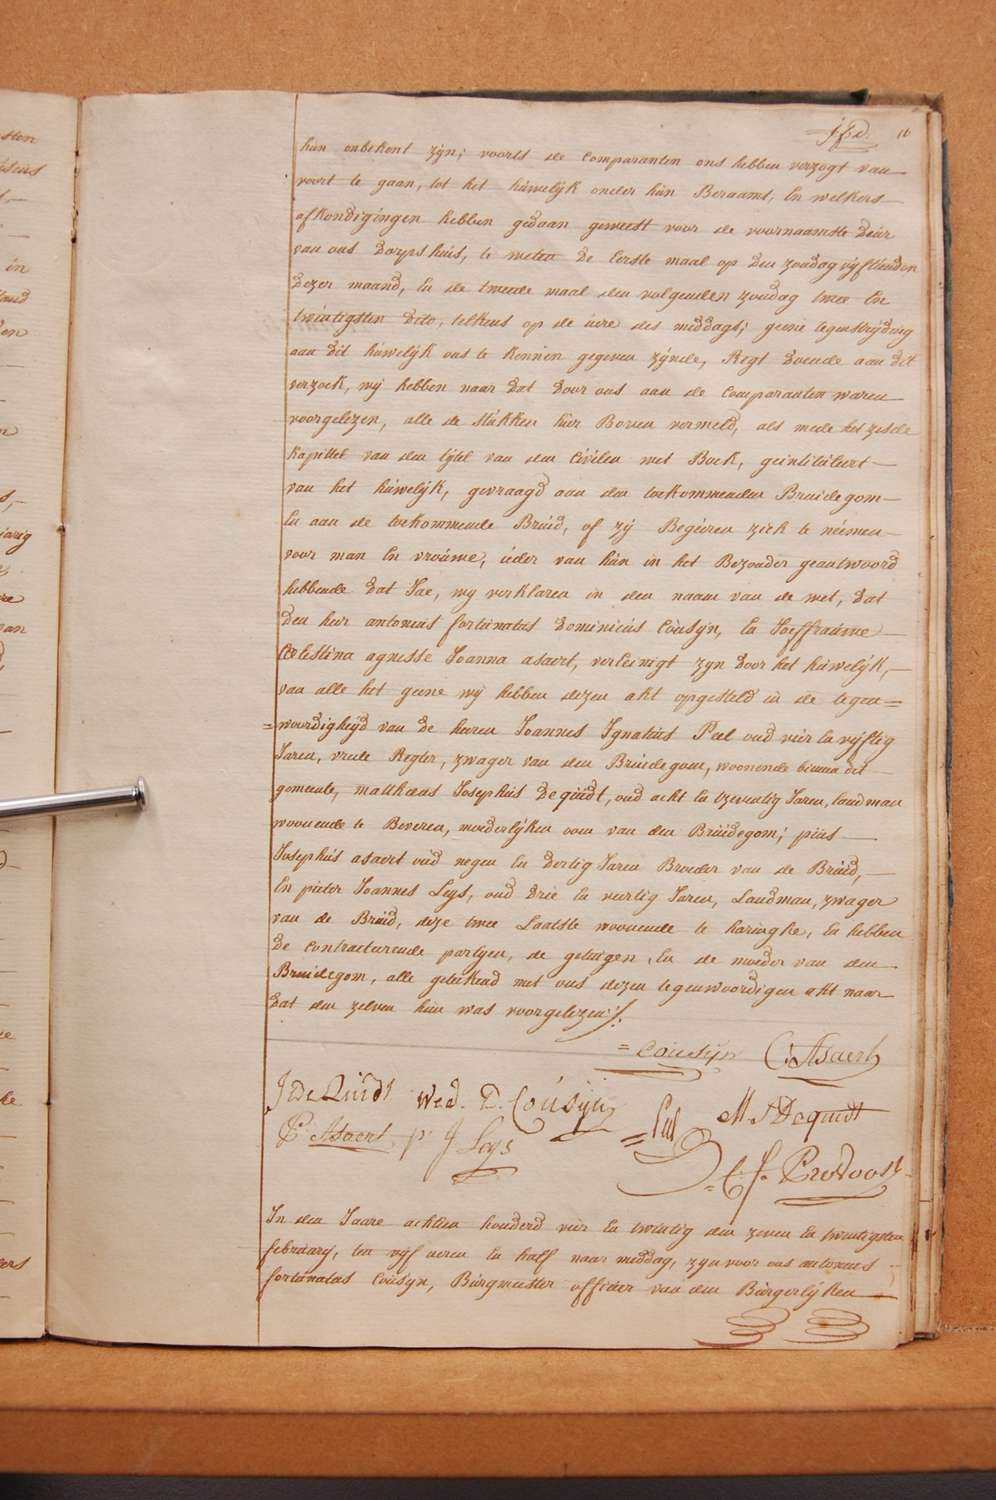 16
hùn onbekent zÿn; voorts de Comparanten ons hebben verzogt van
voort te gaan, tot het hùwelÿk onder hùn Beraamt, En welkers
afkondigingen hebben gedaan geweest voor de voornaamste Deùr
van ons Dorpshuis, te weten De Eerste maal op Den zondag vÿftienden
Dezer maand, En de tweede maal den volgenden zondag twee En
twintigsten Dito, telkens op de ùere des middags; geene tegenstrÿding
aan Dit hùwelÿk ons te kennen gegeven zÿnde, Regt Doende aan Dit
verzoek, wÿ hebben naar Dat Door ons aan de Comparanten waren
voorgelezen, alle de Stùkken hier Boven vermeld, als mede het zesde
kapittel van den tÿtel van den Civilen wet Boek, geintitùleert
van het hùwelÿk, gevraagd aan den toekommenden Bruidegom
En aan de toekommende Brùid, of zÿ Begéeren zich te néemen
voor man En vroùwe, ieder van hùn in het Bezonder geantwoord
hebbende Dat Jae, wÿ verklaren in den naam van de wet, Dat
Den heer antonius fortùnatus Dominicùs Coùsÿn, En Joeffraùwe
Celestina agnesse Joanna asaert, vereinigt zÿn Door het hùwelÿk,
van alle het geene wÿ hebben dezen akt opgesteld in de tegen=
=woordigheÿd van de heeren Joannes Ignatiùs Peel oud vier En vÿftig
Jaren, vrede Regter, zwager van den Brùidegom, woonende binnen dit
gemeente, matthaeus Josephùs Dequidt, oud acht En tzeventig Jaren, landman
woonende te Beveren, moederlÿken oom van den Brùidegom; piùs
Josephùs asaert oùd negen En Dertig Jaren Broeder van de Brùid,
En pieter Joannes Leys, oud Drie En veertig Jaren, Landman, zwager
van de Brùid, deze twee Laatste woonende te haringhe, En hebben
De Contracterende partÿen, de getùigen, En de moeder van den
Bruidegom, alle geteekend met ons dezen tegenwoordigen akt naar
Dat den zelven hùn was voorgelezen ./.
= Cousÿn C: Asaert
J De Quidt Wed. D. Coùsÿn Peel M J Dequidt
P: Asaert p: J Leys
C. J. Provoost
In den Jaare achtien honderd vier En twintig den zeven En twintigsten
febrùary, ten vÿf ùeren En half naar middag, zÿn voor ons antonius
fortùnatus Coùsÿn, Bùrgmeester officier van den Bùrgerlÿken